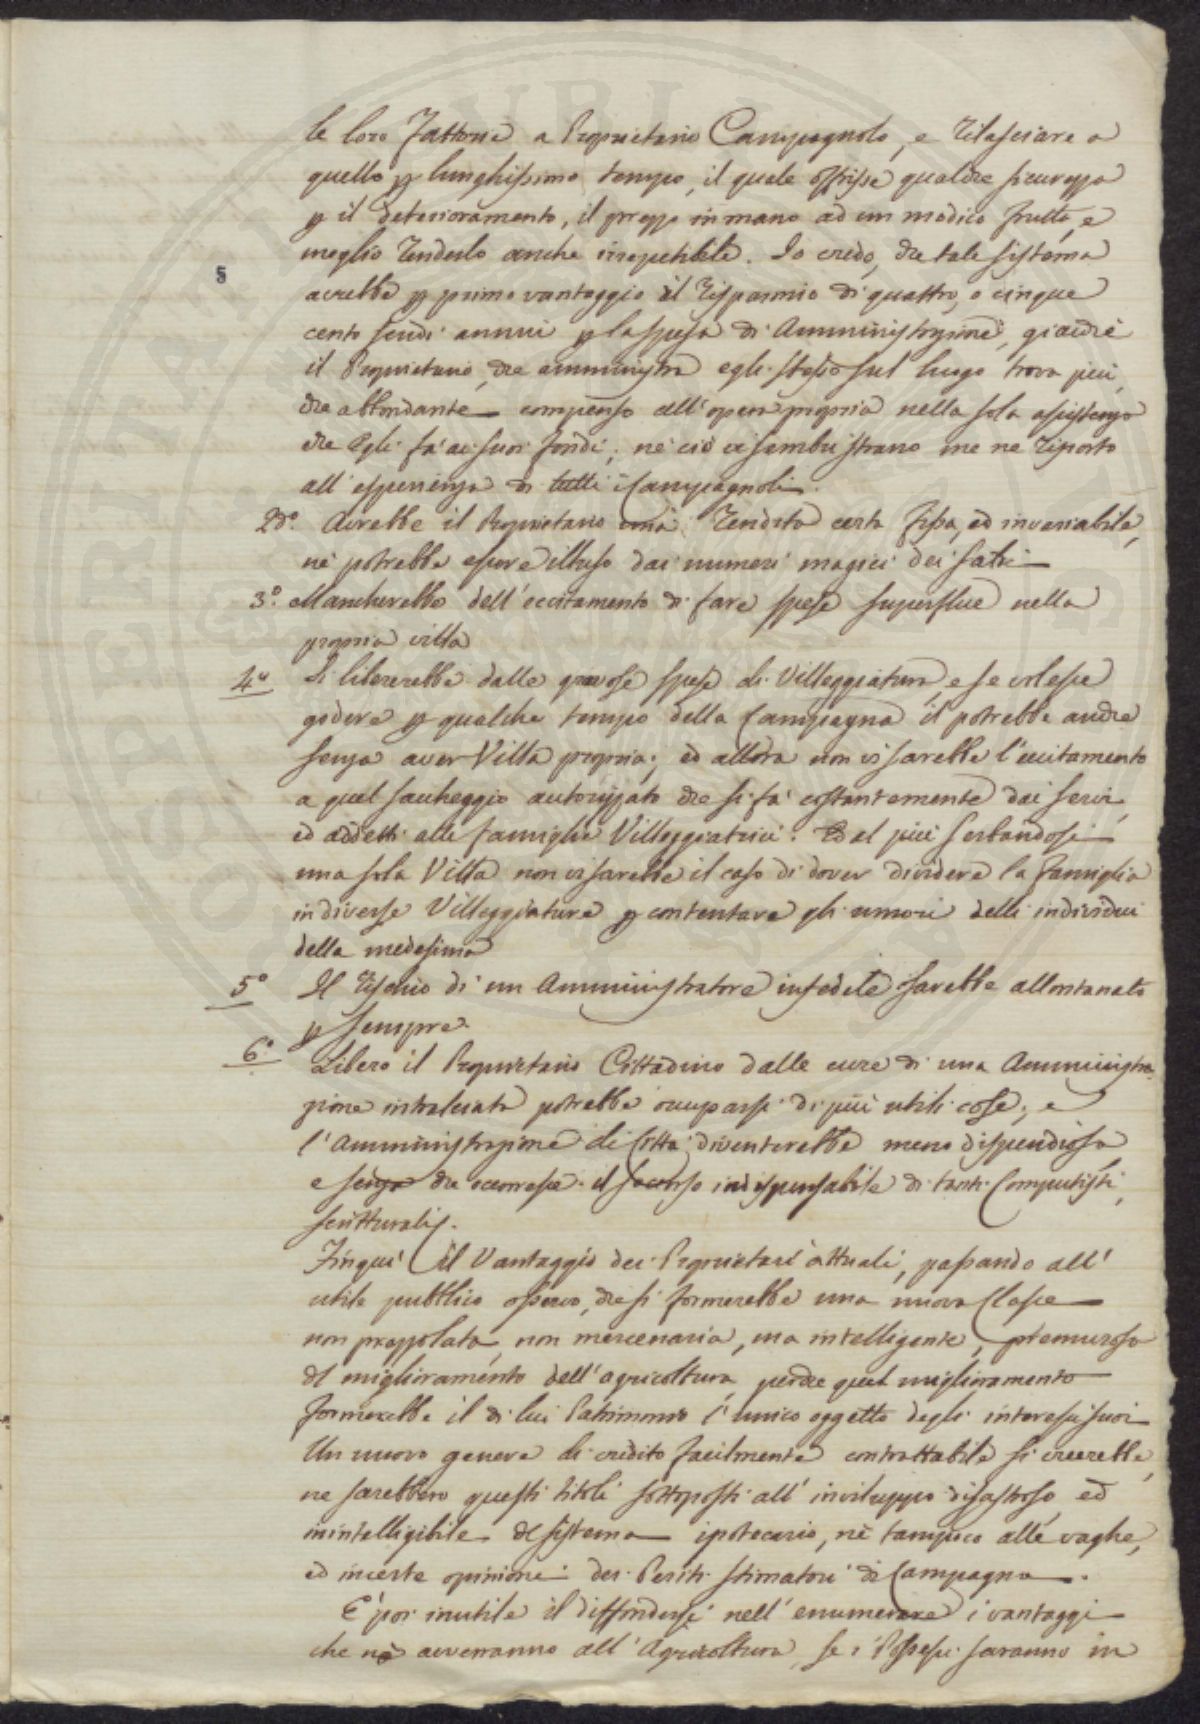 le loro Fattorie a Proprietario Campagnolo, e rilasciare a
quello p lunghissimo tempo, il quale offrisse qualche sicurezza
p il deterioramento, il prezzo in mano ad un modico frutto, e
meglio renderlo anche irrepetibile. Io credo, che tale sistema
avrebbe p primo vantaggio il risparmio di quattro, o cinque
cento scudi annui p la spesa di Amministrazione, giacchè
il Proprietario, che amministra egli stesso sul luogo trova più,
che abbondante compenso all'opera propria nella sola assistenza
che egli fà ai suoi fondi; nè ciò vi sembri strano me ne riporto
all'esperienza di tutti i Campagnoli.
2do. Avrebbe il Proprietario una rendita certa fissa, ed invariabile,
nè potrebbe essere illuso dai numeri magici dei
5
3o. Mancherebbe dell'eccitamento di fare spese superflue nella
propria villa
4o Si libererebbe dalle gravose spese di Villeggiatura, e se volesse
godere p qualche tempo della Campagna il potrebbe anche
senza aver Villa propria; ed allora non vi sarebbe l'eccitamento
a quel saccheggio autorizzato che si fà costantemente dai servi,
ed addetti alle famiglie Villeggiatrici. Ed al più serbandosi
una sola Villa non vi sarebbe il caso di dover dividere la famiglia
in diverse Villeggiature p contentare gli umori delli individui
della medesima
5o Il rischio di un Amministratore infedele sarebbe allontanato
p sempre.
6o. Libero il Proprietario Cittadino dalle cure di una Amministra-
zione intralciata potrebbe occuparsi di più utili cose; e
l'Amministrazione di Città diventerebbe meno dispendiosa
e senza che occorresse il soccorso indispensabile di tanti Computisti,
scritturali.
Finquì il Vantaggio dei Proprietarî attuali, passando all'
utile pubblico osservo, che si formerebbe una nuova Classe
non prezzolata, non mercenaria, ma intelligente, premurosa
del miglioramento dell'agricoltura, perchè quel miglioramento
formerebbe il di lui Patrimonio l'unico oggetto degli interessi suoi
Un nuovo genere di credito facilmente contrattabile si creerebbe,
ne sarebbero questi titoli sottoposti all'inviluppo disastroso, ed
inintelligibile del sistema ipotecario, nè tampoco alle vaghe,
ed incerte opinioni dei Periti stimatori di Campagna.
E' poi inutile il diffondersi nell'enumerare i vantaggi
che ne avverranno all'Agricoltura, se i Possessi saranno in